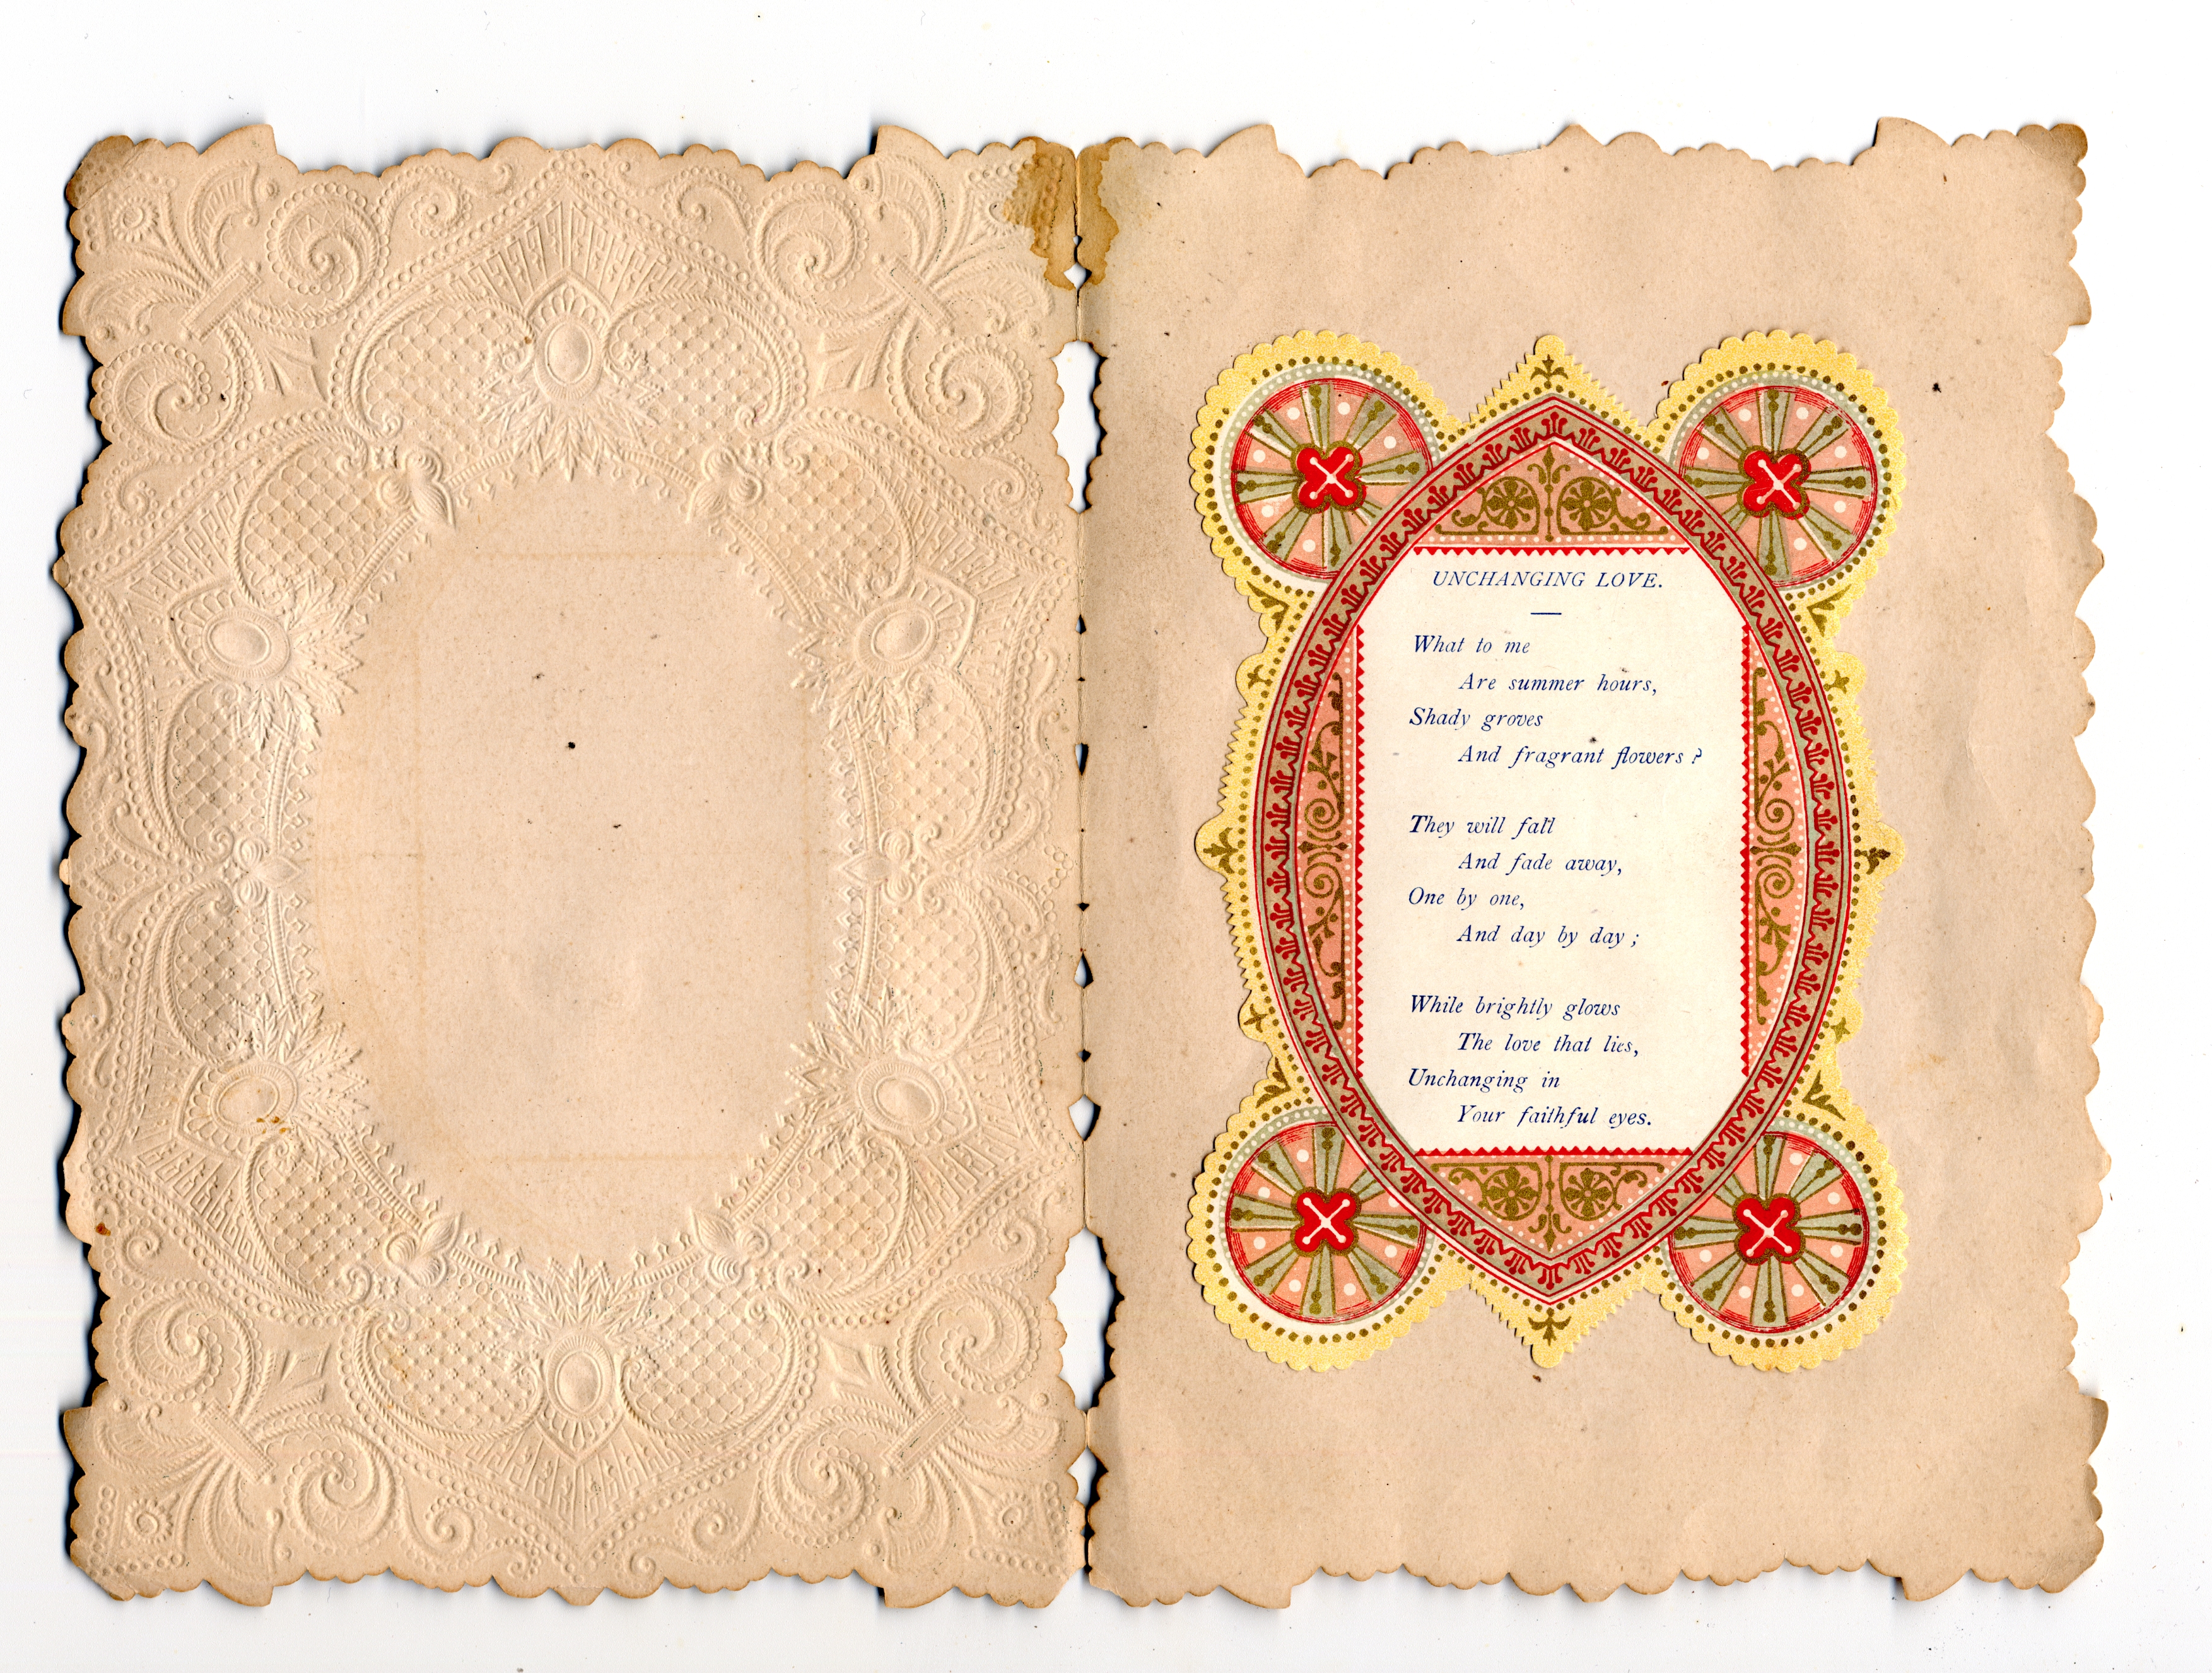 UNCHANGING LOVE.
What to me
Are summer hours,
Shady groves
And fragrant flowers ?
They will fall
And fade away,
One by one,
And day by day ;
While brightly glows
The love that lies,
Unchanging in
Your faithful eyes.